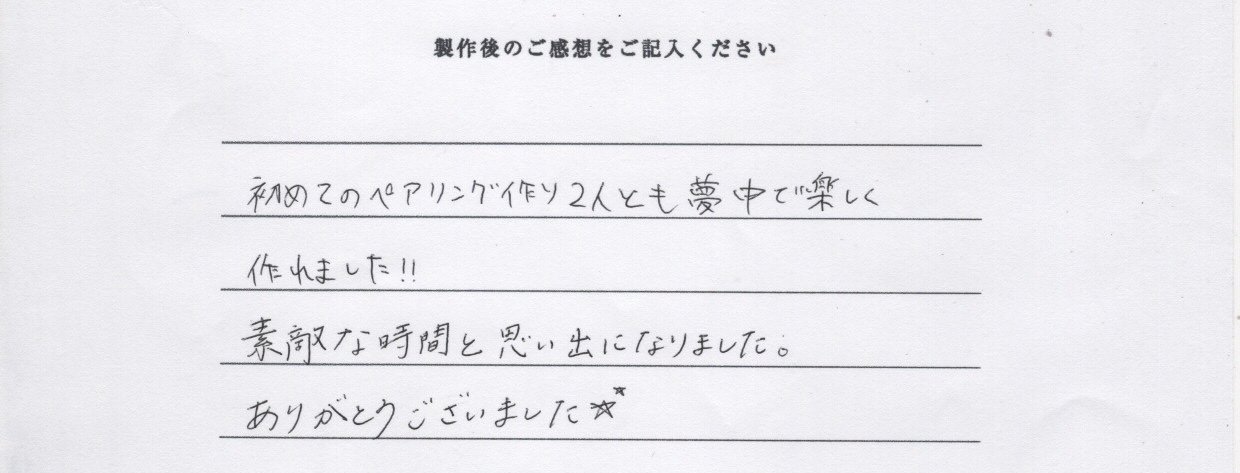 製作後のご感想をご記入ください
初めてのペアリング作り2人とも夢中で楽しく
作れました!!
素敵な時間と思い出になりました。
ありがとうございました☆☆